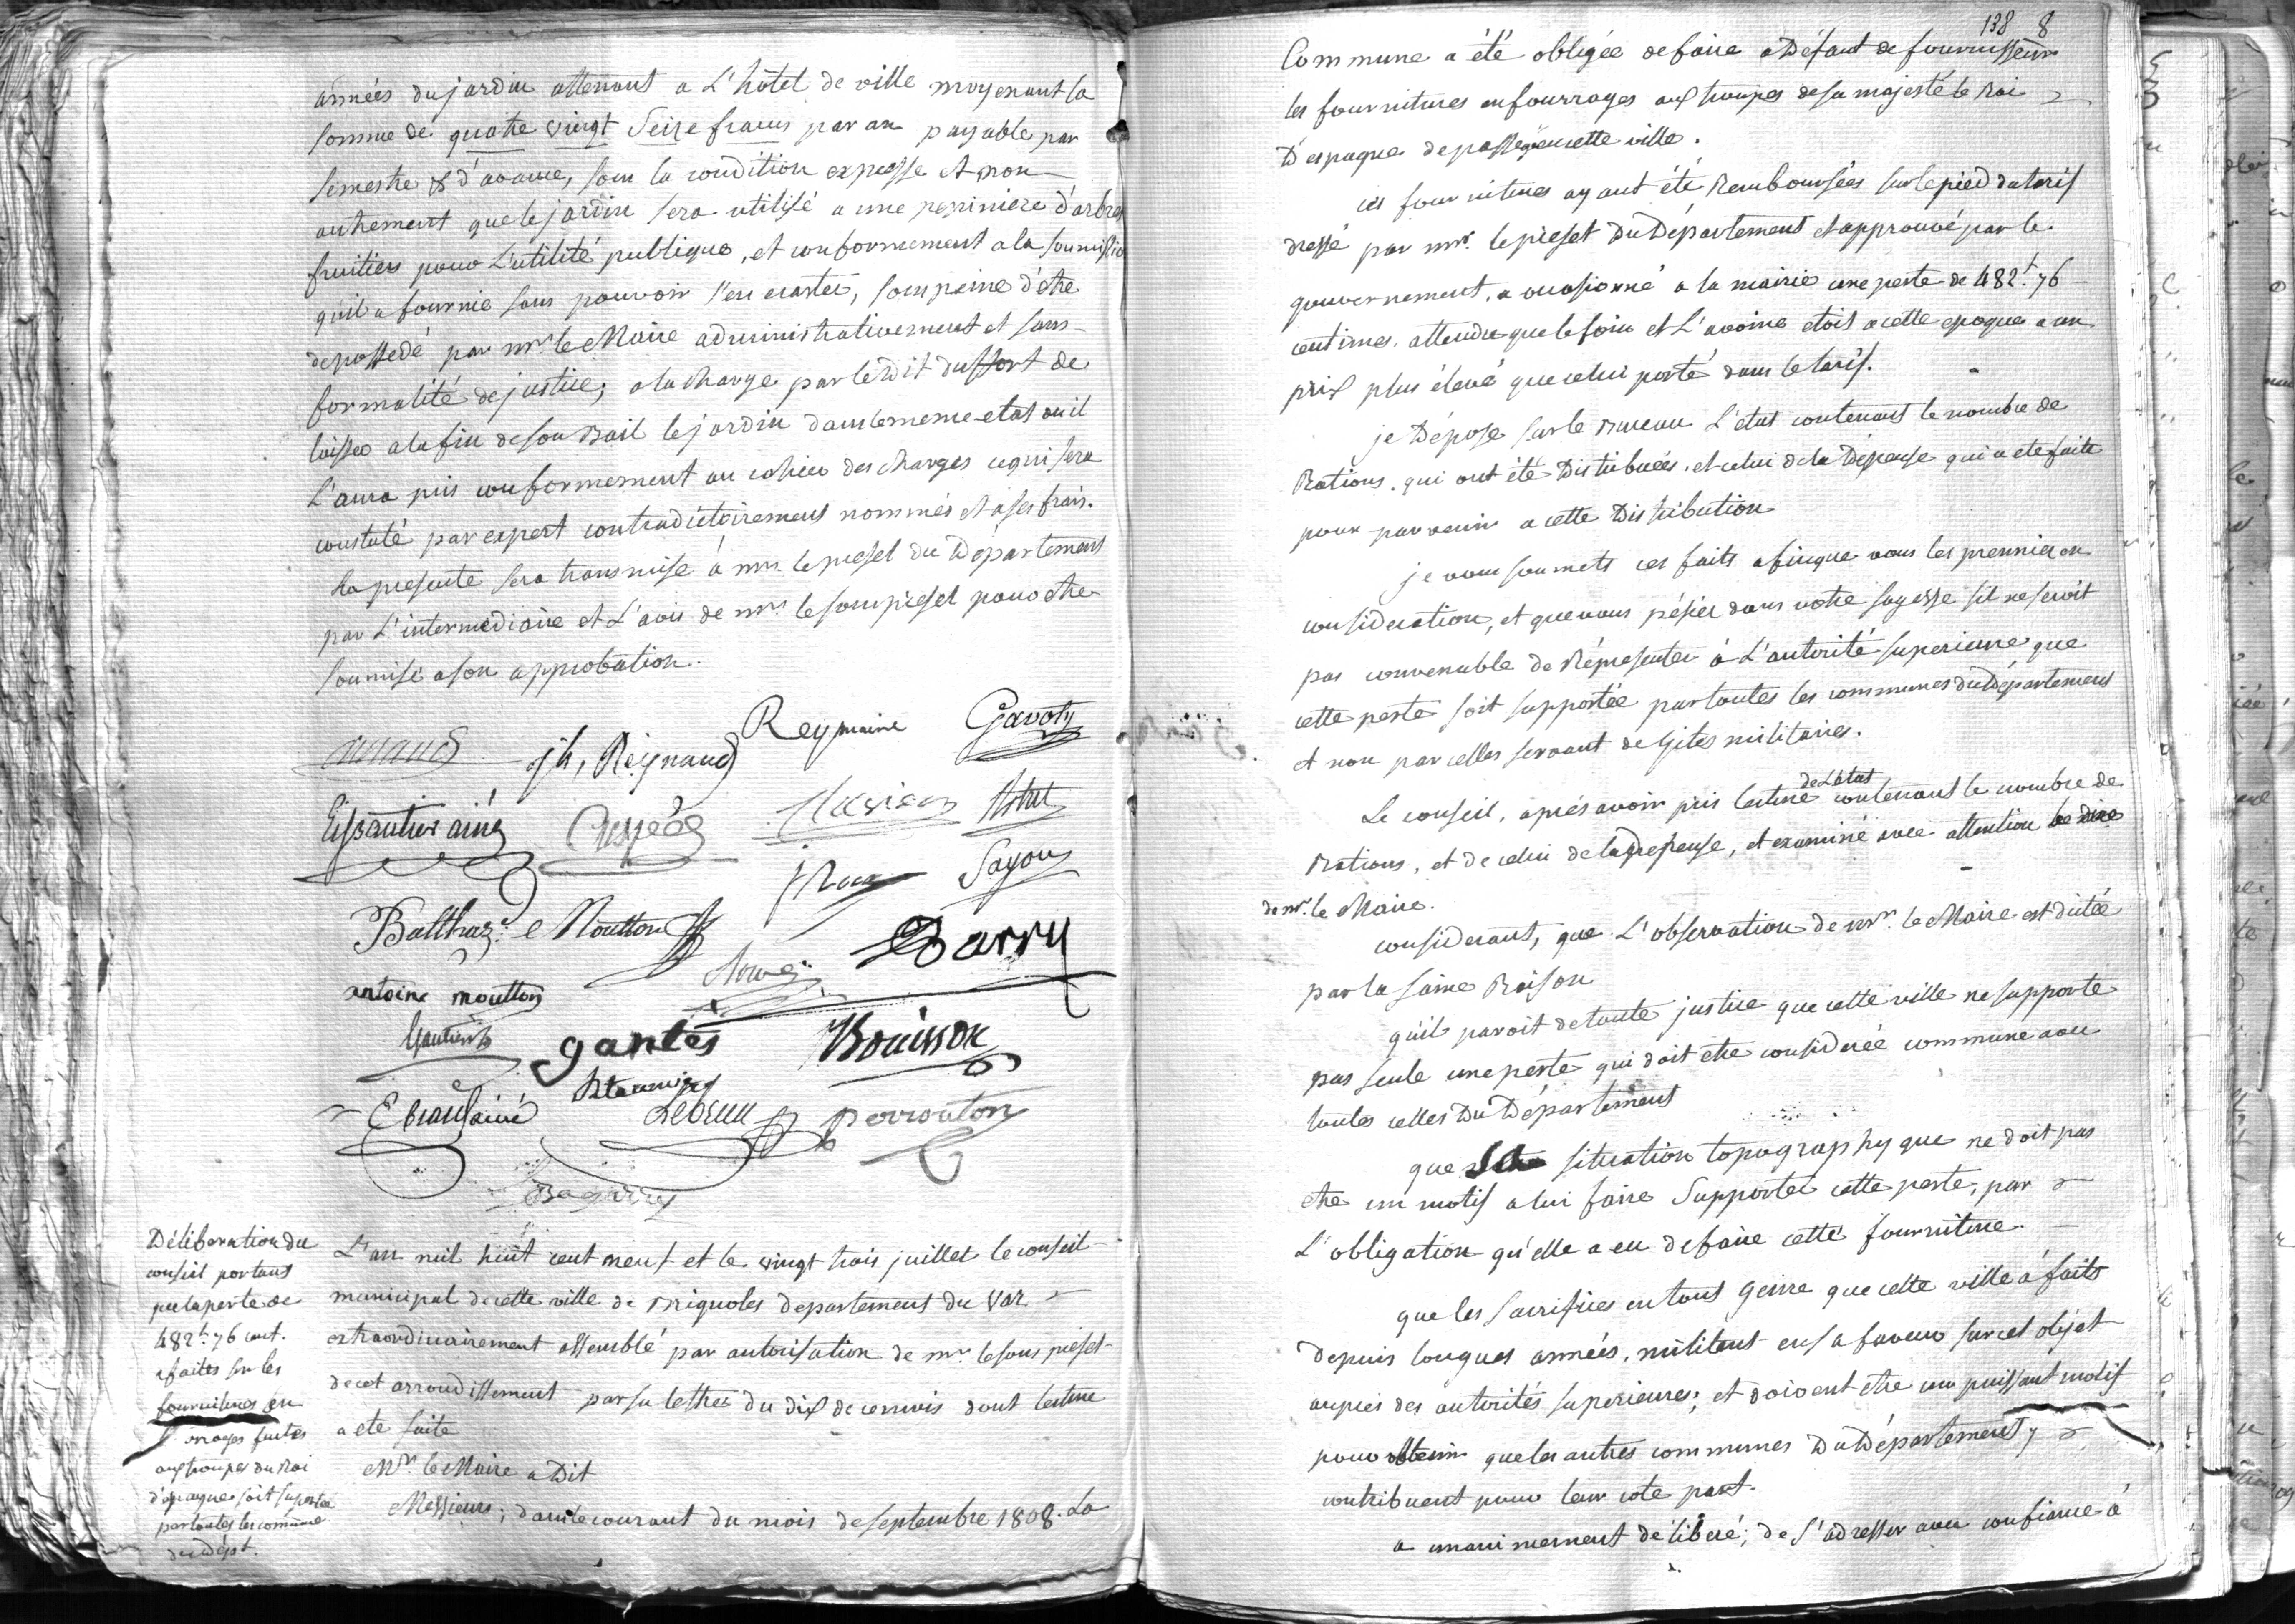 années du jardin attenant a L'hôtel de ville moyenant la
somme de quatre vingt Seize francs par an payable par
semestre & d'avance, sous la condition expresse et non
autrement que le jardin sera utilisé a une pepiniere d'arbres
fruitiers pour L'utilité publique, et conformement a la soumission
quil a fournie sans pouvoir s'en ecarter, sous peine d'être
depossedé par mr. le Maire administrativement et sans
formalité de justice; a la charge par le dit dufort de
laisser a la fin de son Bail le jardin dans le meme etat ou il
L'aura pris conformement au cahier des charges ce qui sera
constaté par expert contradictoirement nommés et a ses frais.
La presente sera transmise à mr. le prefet du Département
par L'intermediaire et L'avis de mr. le sousprefet pour etre
soumise a son approbation.
Reymaine Gavoty
jh, Reynaud
Eissautier ainé
Sayou
Balthaz. Moutton
Barry
antoine moutton
gantés Bouisson
Lebrun perrouton
Bagarry
Déliberation du
conseil portant
que la perte de
482t. 76 cent.
faites sur les
fournitures en
faites
aux troupes du Roi
d'espagne soit suportée
par toutes les commune
du dépt.
L'an mil huit cent neuf et le vingt trois juillet le conseil
municipal de cette ville de Brignoles departement du Var
extraordinairement assemblé par autorisation de mr. le sous prefet
de cet arrondissement par sa lettre du dix de ce mois dont lecture
a ete faite
Mr. le Maire a Dit
Messieurs; dans le courant du mois de septembre 1808. La
138 8
Commune a été obligée de faire a Défaut de fournisseur
les fournitures en fourrages aux troupes de sa majesté le Roi
D'espagne de passage en cette ville.
ces fournitures ayant été Remboursées sur le pied du tarif
dressé par mr. le prefet Du Département et approuvé par le
gouvernement, a occasionné a la mairie une perte de 482t. 76
centimes. attendu que le foin et L'avoine etoit a cette epoque a un
prix plus élevé que celui porté dans le tarif.
je Dépose sur le Bureau L'etat contenant le nombre de
Rations. qui ont été Distribuées. et celui de la Dépense qui a ete faite
pour parvenir a cette Distribution
je vous soumets ces faits afin que vous les preniez en
consideration, et que vous pésiez dans votre sagesse s'il ne seroit
pas convenable de Répresenter à L'autorité superieure que
cette perte soit supportée par toutes les communes du Département
et non par celles servant de Gites militaires.
Le conseil, aprés avoir pris lecture de L'état contenant le nombre de
Rations, et de celui de la Depense, et examiné avec attention le dire
de mr. le Maire.
considerant, que L'observation de mr. le Maire est dictée
par la saine Raison
qu'il paroit de toute justice que cette ville ne supporte
pas seule une perte qui doit etre considerée commune a ou
toutes celles Du Département
que sa situation topographyque ne doit pas
etre un motif a lui faire Supporter cette perte, par
L'obligation qu'elle a eu de faire cette fourniture.
que les sacrifices en tout Genre que cette ville a faits
depuis longues années, militent en sa faveur sur cet objet
auprés des autorités superieures; et doivent etre un puissant motif
pour obtenir que les autres communes Du Département,
contribuent pour leur cote part.
a unanimement déliberé; de s'adresser avec confiance à